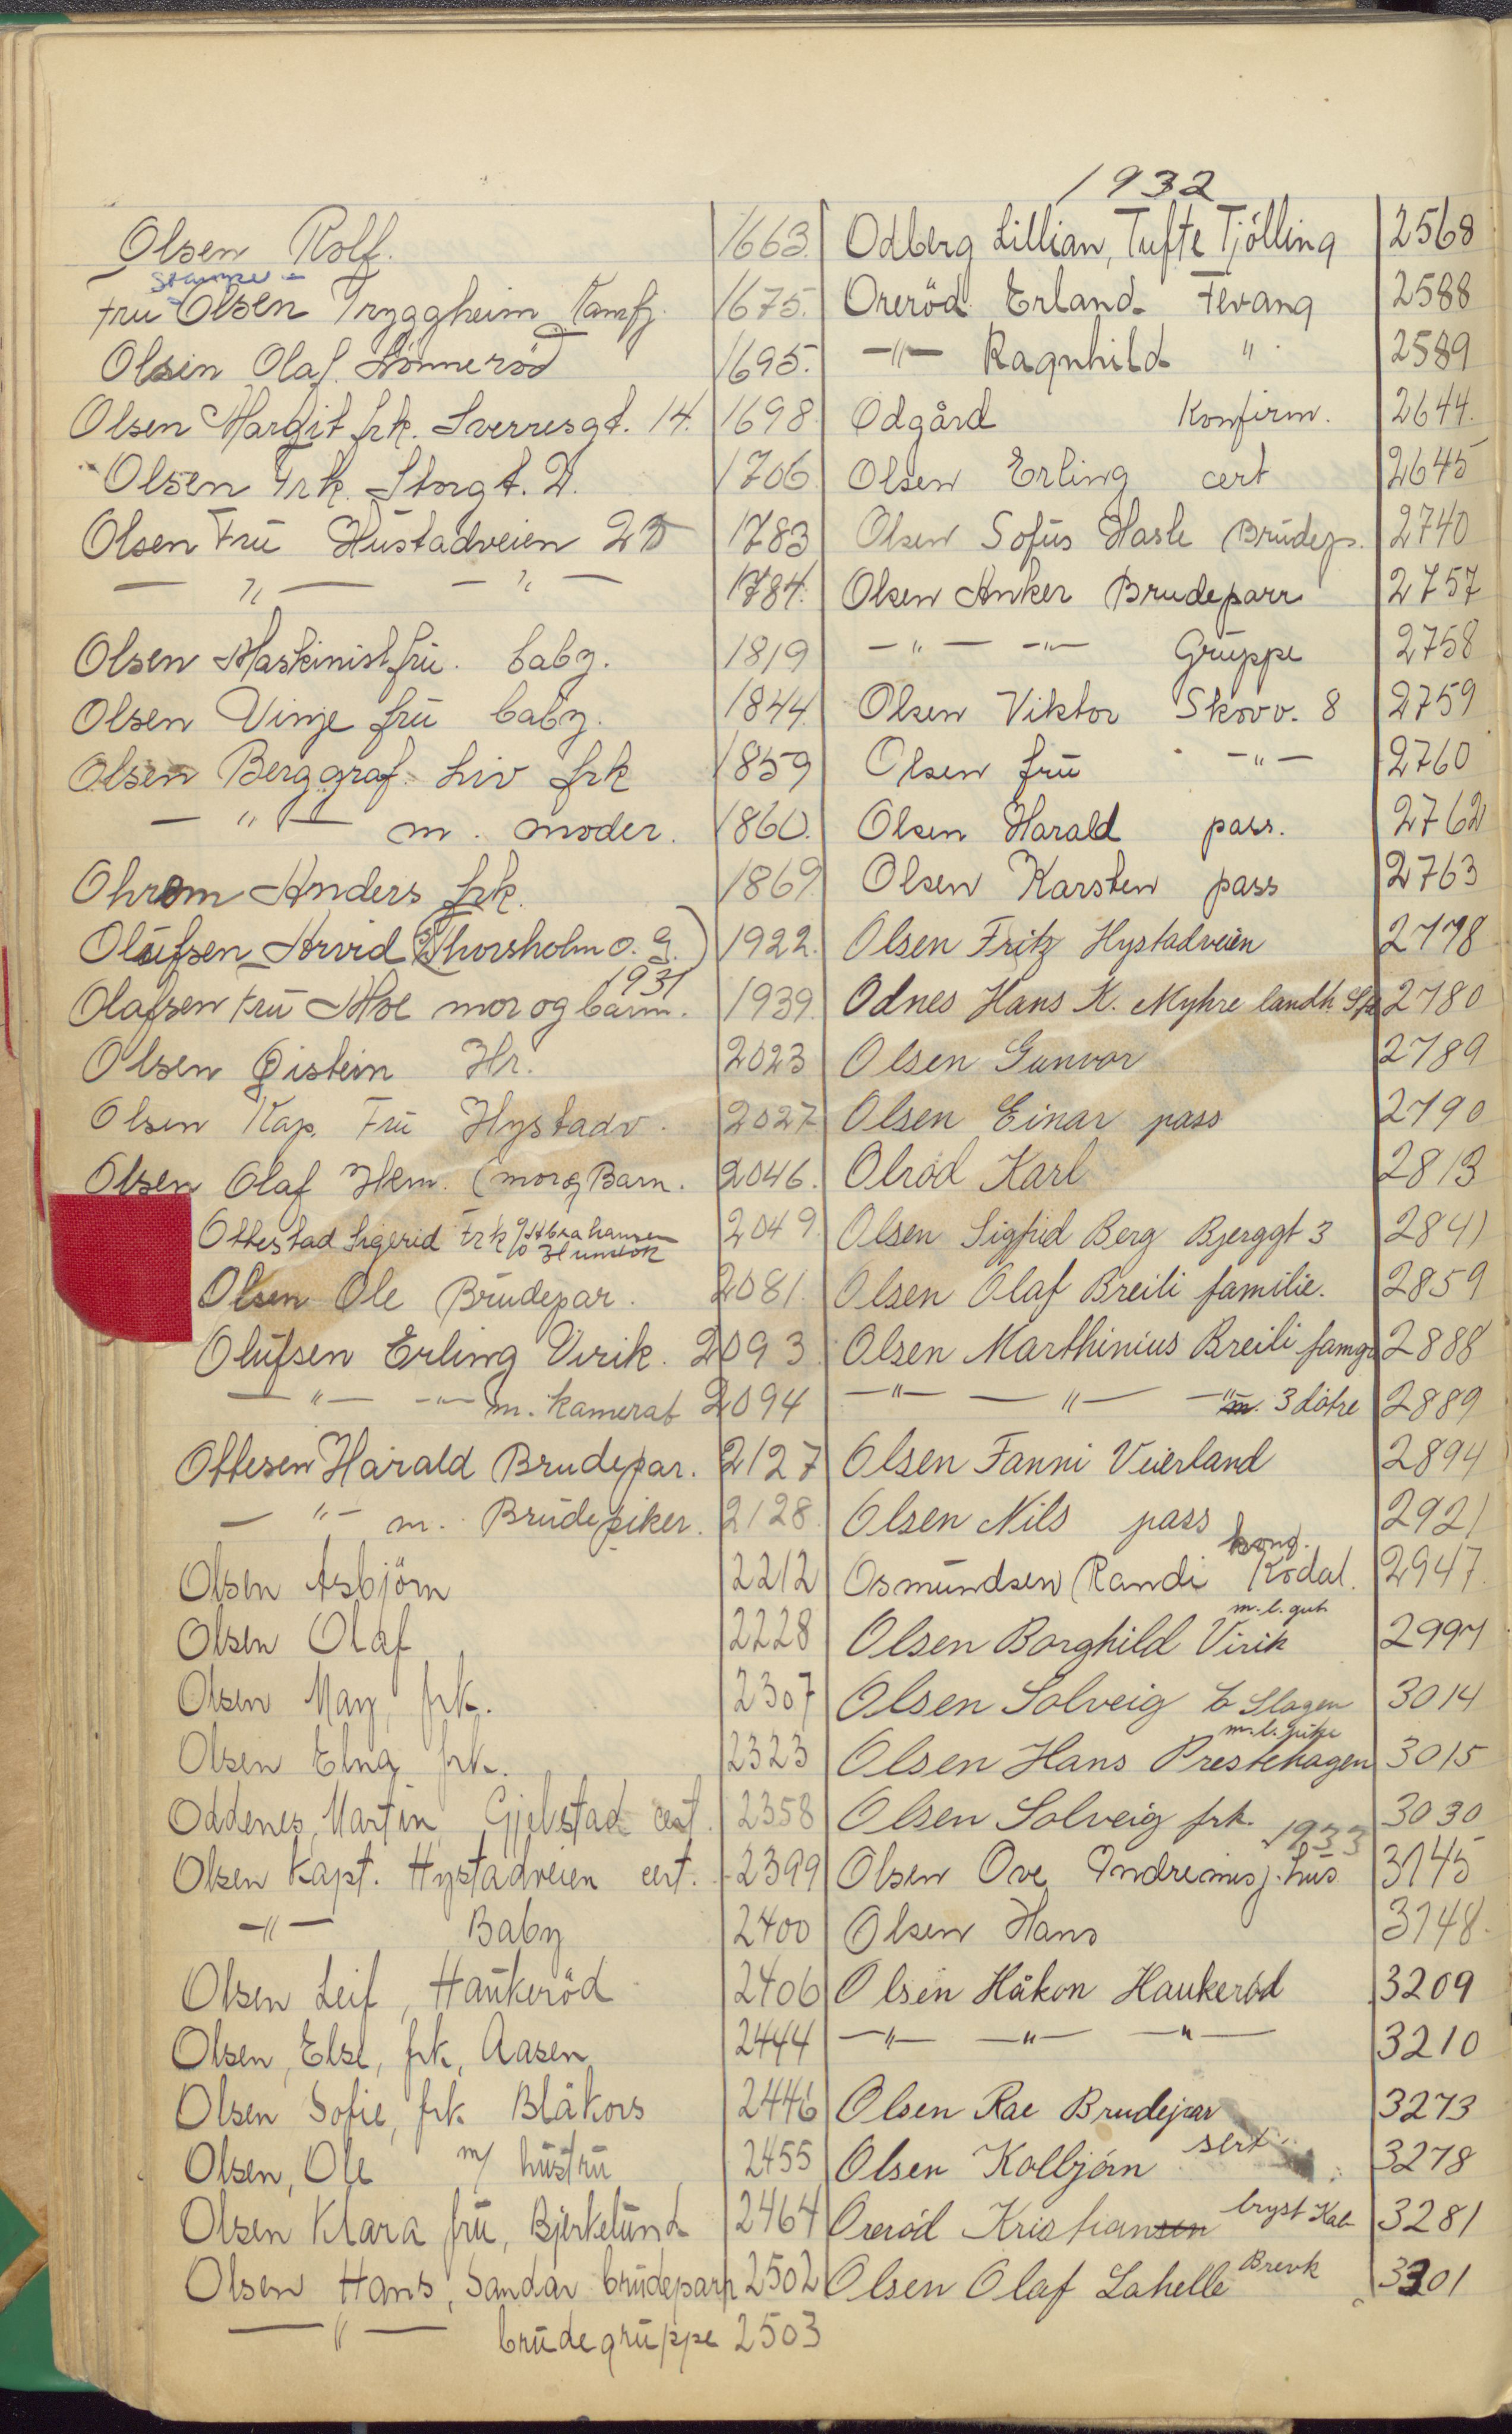 Olsen Rolf. 1663.
Fru Olsen Tryggheim Kamfj. 1675.
Olsen Olaf. Lönneröd 1695.
Olsen Margit frk. Sverresgt. 14. 1698.
Olsen Frk. Storgt. 1706
Olsen Fru Hüstadveien 2 1783
— " — — " — 1784.
Olsen Maskinist frü. baby. 1819
Olsen Vinje frü baby. 1844.
Olsen Berggraf. Liv frk 1859
— " — m. moder. 1860.
Ohrom Anders frk. 1869.
Olüfsen Arvid (Thorsholm o. g.) 1922.
1931
Olafsen Frü Moe mor og barn. 1939.
Olsen Øistein Hr. 2023
Olsen Kap. Frü Hystadv. 2027
Olsen Olaf Hem. (mor og Barn. 2046.
Ottestad Sigerid Frk c/o Abrahansen 2049.
Olsen Ole Brüdepar. 2081.
Olüfsen Erling Virik. 2093
— " — — " — m. kamerat 2094
Ottesen Harald Brudepar. 2127
— " — m. Brüdepiker. 2128.
Olsen Asbjörn 2212
Olsen Olaf 2228
Olsen May, frk. 2307
Olsen Elna frk. 2323
Oddenes, Martin Gjekstad cert. 2358
Olsen Kapt. Hystadveien cert. 2399
— " — Baby 2400
Olsen Leif, Haükeröd 2406
Olsen, Else, frk, Aasen 2444
Olsen Sofie, frk Blåkors 2446
Olsen, Ole m/ hüstrü 2455
Olsen Klara frü, Bjerkelünd 2464
Olsen Hans, Sandar brüdeparr 2502
— " — brüdegrüppe 2503
1932
Odberg Lillian, Tufte Tjölling 2568
Oreröd Erland Fevang 2588
— " — Ragnhild " 2589
Odgård Konfirm. 2644.
Olsen Erling cert 2645
Olsen Sofüs Hasle Brüdep. 2740
Olsen Anker Brudeparr 2757
— " — — " — Grüppe 2758
Olsen Viktor Skovv. 8 2759
Olsen frü — " — 2760
Olsen Harald pass. 2762
Olsen Karsten pass 2763
Olsen Fritz Hystadveien 2778
Odnes Hans K. Myhre landh. 2780
Olsen Gunvor 2789
Olsen Einar pass 2790
Olröd Karl 2813
Olsen Sigfrid Berg Bjerggt 3 2841
Olsen Olaf Breili familie. 2859
Olsen Marthinius Breili famgr 2888
— " — — " — — " — m. 3 dötre 2889
Olsen Fanni Veierland 2894
Olsen Nils pass 2921
Osmündsen Randi Kodal. 2947.
m. l. gut
Olsen Borghild Virik 2994
Olsen Solveig Slagen 3014
m. l. pike
Olsen Hans Prestehagen 3015
Olsen Solveig frk. 3030
1933
Olsen Ove Indremisj. hüs 3145
Olsen Hans 3148.
Olsen Håkon Haukeröd 3209
— " — — " — — " — 3210
Olsen Rae Brudepar 3273
Olsen Kolbjörn sert 3278
Oreröd Kristiansen bryst Kab 3281
Olsen Olaf Lahelle Brevk 3301